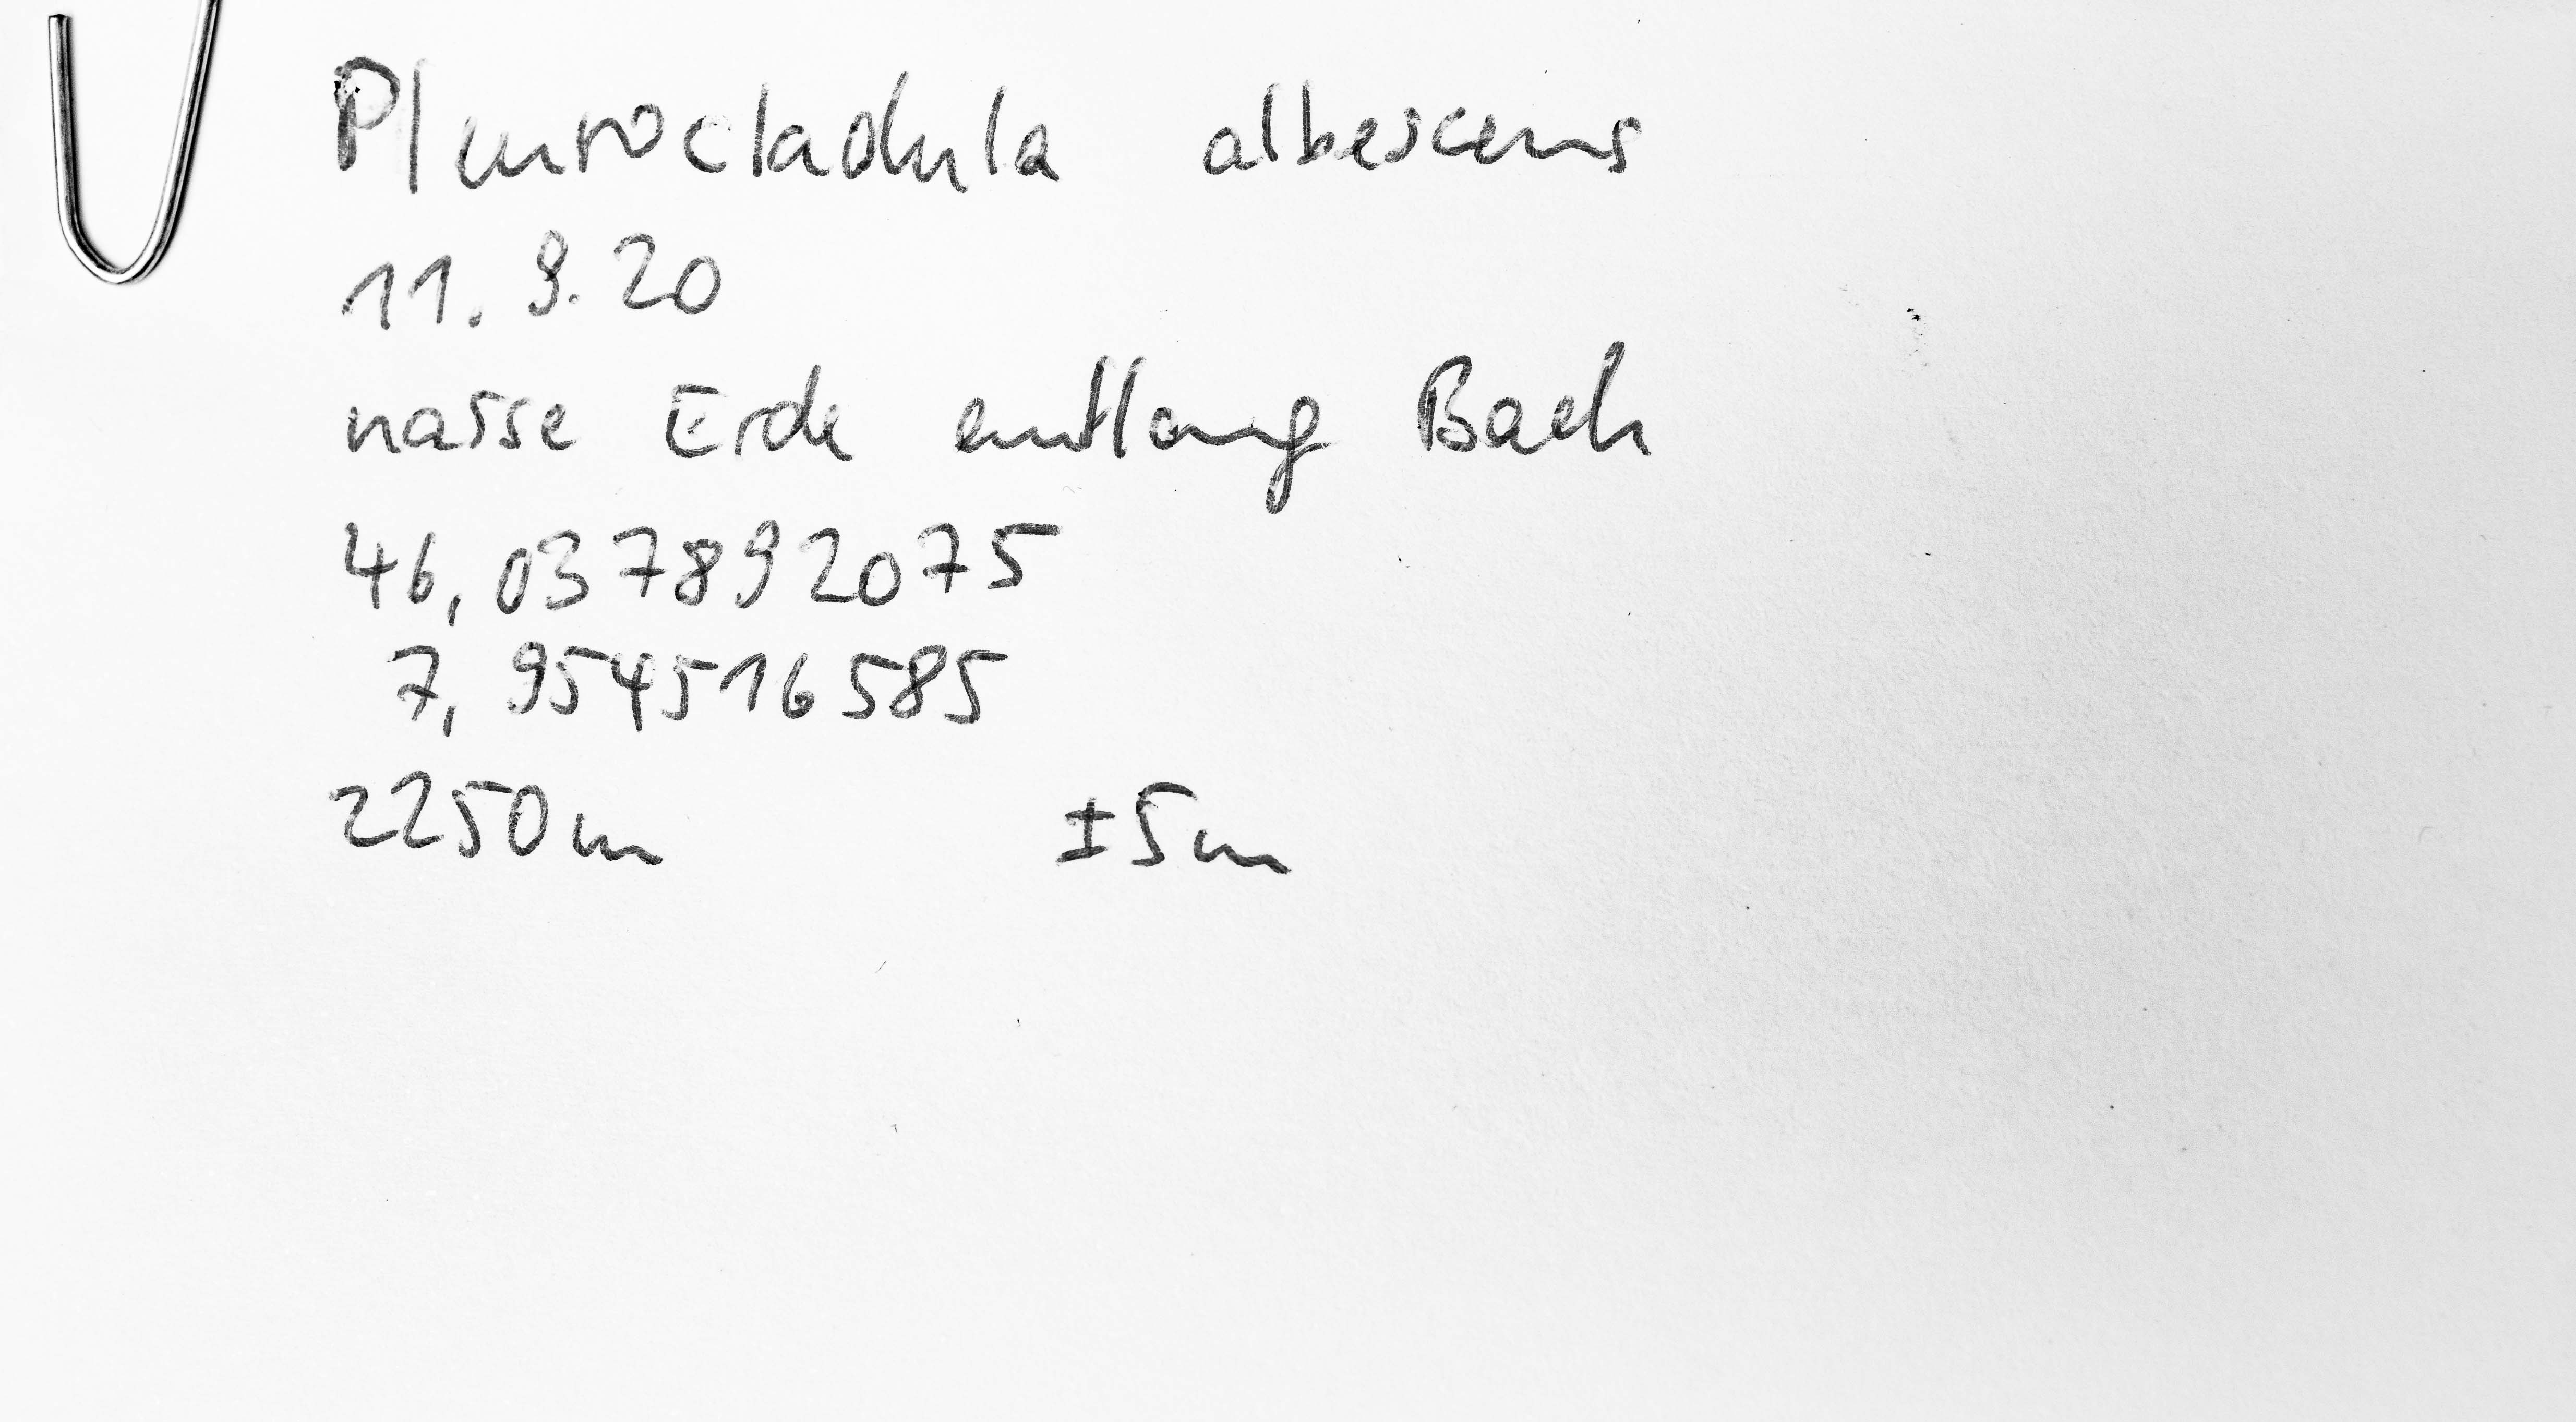 Pleurocladula albescens
11. 9. 20
nasse Erde entlang Bach
46,037892075
7,954516585
2250m ±5m